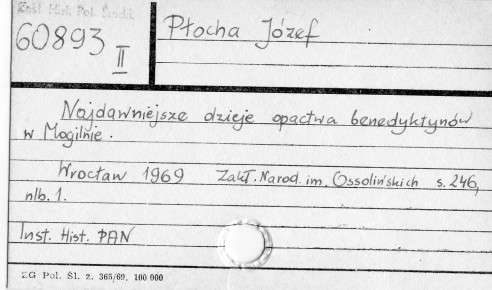 Zakł. Hist. Pol. Średn.
60893
II
Płocha Józef
Najdawniejsze dzieje opactwa benedyktynów
w Mogilnie.
Wrocław 1969 Zakł. Narod. im. Ossolińskich s. 246,
nlb. 1.
Inst. Hist. PAN
ZG Pol. Śl. z. 365/69. 100 000